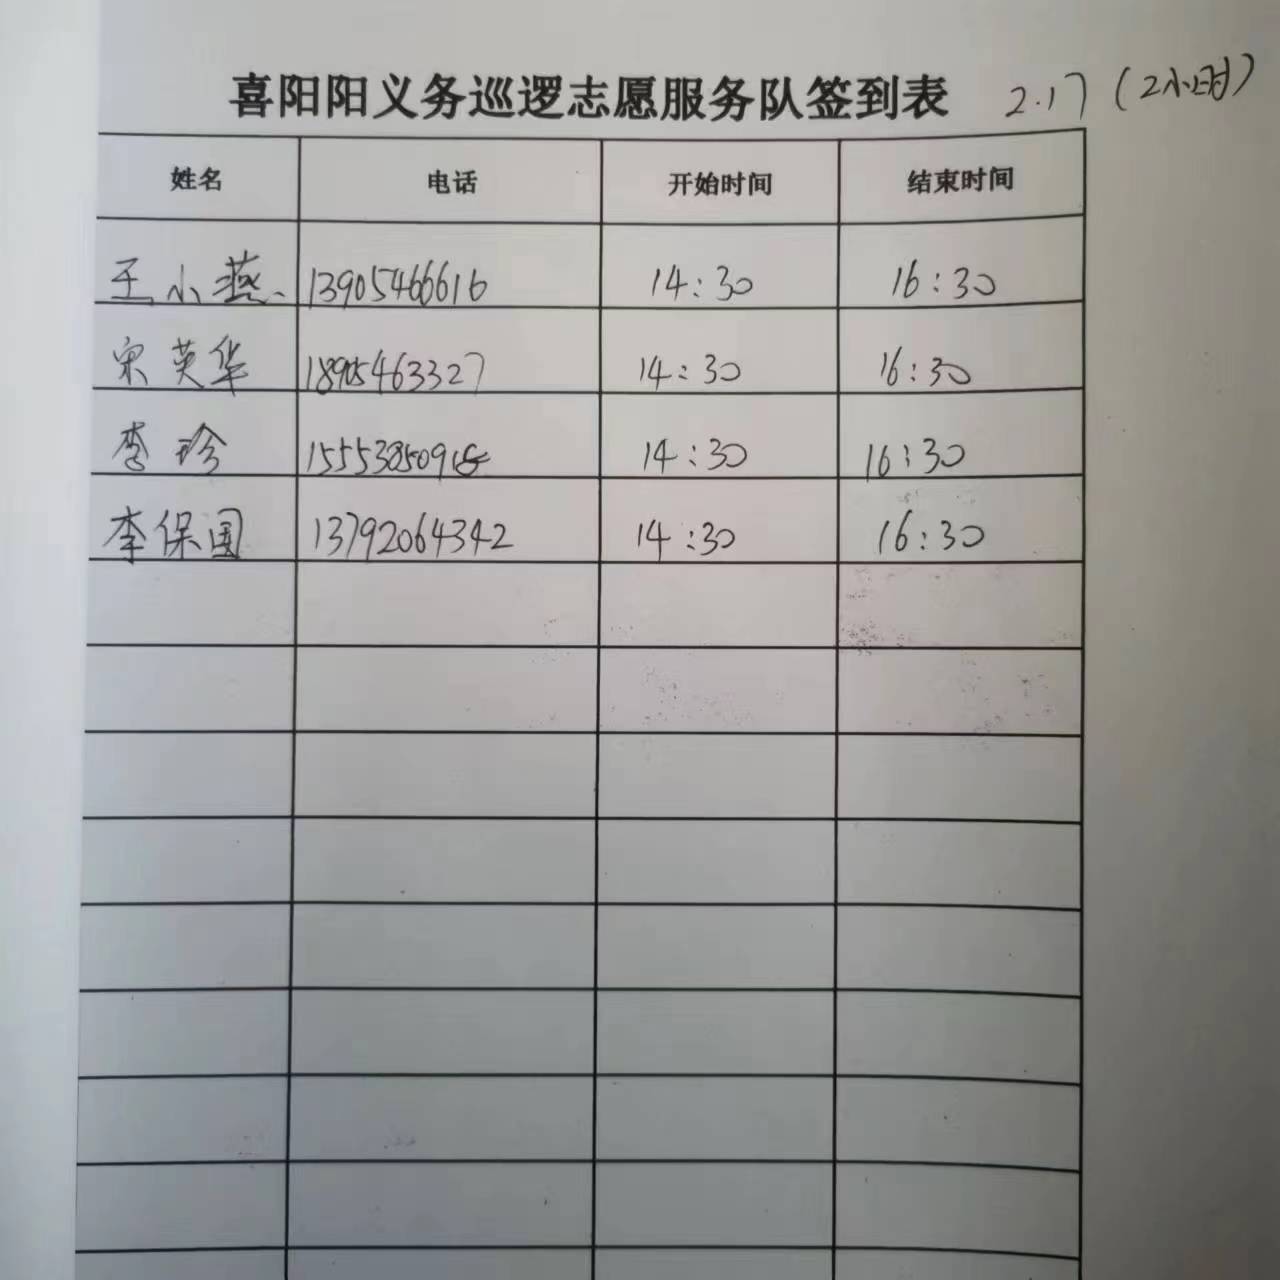 喜阳阳义务巡逻志愿服务队签到表 2.17(2小时)
姓名 电话 开始时间 结束时间
王小燕 13905466616 14:30 16:30
宋英华 18905463327 14:30 16:30
李珍 14:30 16:30
李保国 13792064342 14:30 16:30